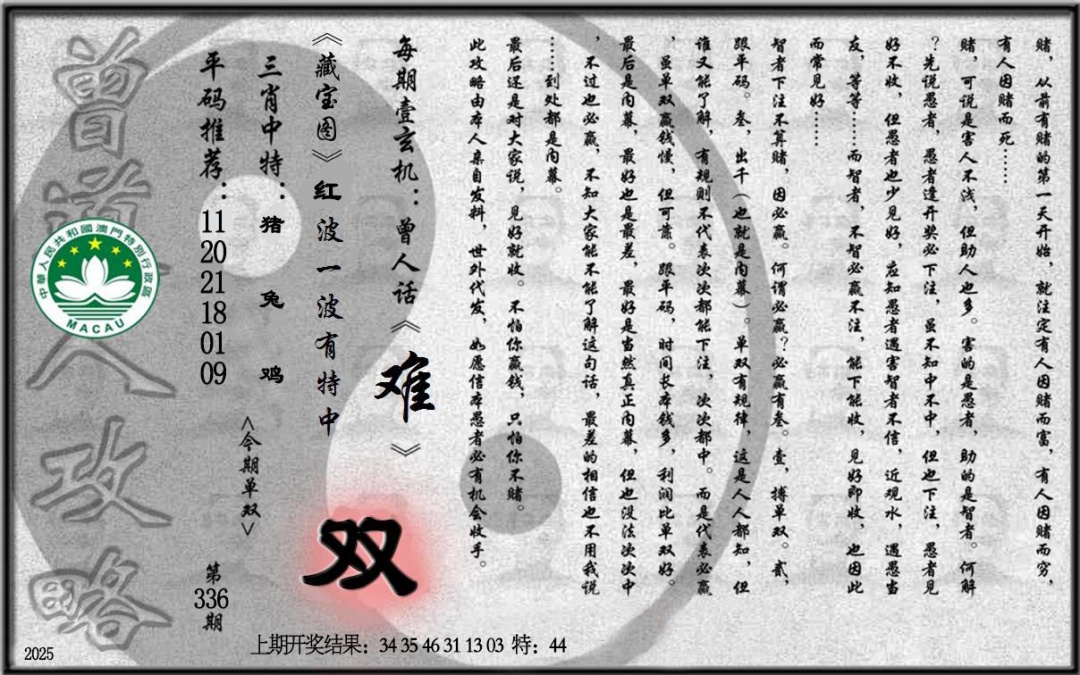 赌，从前有赌的第一天开始，就注定有人因赌而富，有人因赌而穷，
有人因赌而死……
赌，可说是害人不浅，但助人也多。害的是愚者，助的是智者。何解
？先说愚者，愚者逢开奖必下注，虽不知中不中，但也下注，愚者见
好不收，但愚者也少见好，应知愚者遇害智者不信，近观水，遇愚当
友，等等……而智者，不智必赢不注，能下能收，见好即收，也因此
而常见好……
智者下注不算赌，因必赢。何谓必赢？必赢有叁。壹，搏单双。贰，
跟平码。叁，出千（也就是内幕）。单双有规律，这是人人都知，但
谁又能了解，有规则不代表次次都能下注，次次都中。而是代表必赢
，虽单双赢钱慢，但可靠。跟平码，时间长本钱多，利润比单双好。
最后是内幕，最好也是最差，最好是当然真正内幕，但也没法次次中
，不过也必赢，不知大家能不能了解这句话，最差的相信也不用我说
……到处都是内幕。
最后还是对大家说，见好就收。不怕你赢钱，只怕你不赌。
此攻略由本人亲自发料，世外代发，如愿信本愚者必有机会收手。
每期壹玄机：曾人话《难》
《藏宝图》红波一波有特中
双
三肖中特：猪 兔 鸡
<今期单双>
平码推荐：
11
20
21
18
01
09
第
336
期
曾道人攻略
中華人民共和國澳門特別行政區
MACAU
上期开奖结果：34 35 46 31 13 03 特：44
2025